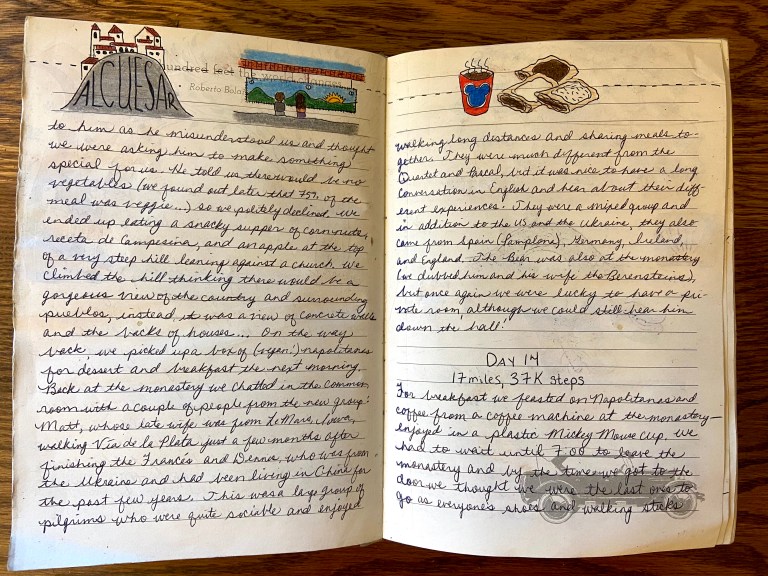 ALCUESAR
hundred feet the world changes
Roberto Bola
to him as he misunderstood us and thought
we were asking him to make something
special for us. He told us there would be no
vegetables (we found out later that 75% of the
meal was veggie...) so we politely declined. We
ended up eating a snacky supper of corn nuts,
receta de Campesina, and an apple at the top
of a very steep hill leaning against a church. We
climbed the hill thinking there would be a
gorgeous view of the country and surrounding
pueblos, instead, it was a view of concrete walls
and the backs of houses... On the way
back, we picked up a box of (vegan!) napolitanas
for dessert and breakfast the next morning.
Back at the monastery we chatted in the common
room with a couple of people from the new group:
Matt, whose late wife was from LeMars, Iowa,
walking Vía de la Plata just a few months after
finishing the Francés and Denna, who was from
the Ukraine and had been living in China for
the past few years. This was a large group of
pilgrims who were quite sociable and enjoyed
walking long distances and sharing meals to-
gether. They were much different from the
Quartet and Pascal, but it was nice to have a long
conversation in English and hear about their diff-
erent experiences. They were a mixed group and
in addition to the US and the Ukraine, they also
came from Spain (Pamplona), Germany, Ireland,
and England. The Bear was also at the monastery
(we dubbed him and his wife the Berensteins),
but once again we were lucky to have a pri-
vate room, although we could still hear him
down the hall.
DAY 14
17 miles, 37K steps
For breakfast we feasted on Napolitanas and
coffee from a coffee machine at the monastery—
enjoyed in a plastic Mickey Mouse cup. We
had to wait until 7:00 to leave the
monastery and by the time we got to the
door we thought we were the last ones to
go as everyone's shoes and walking sticks